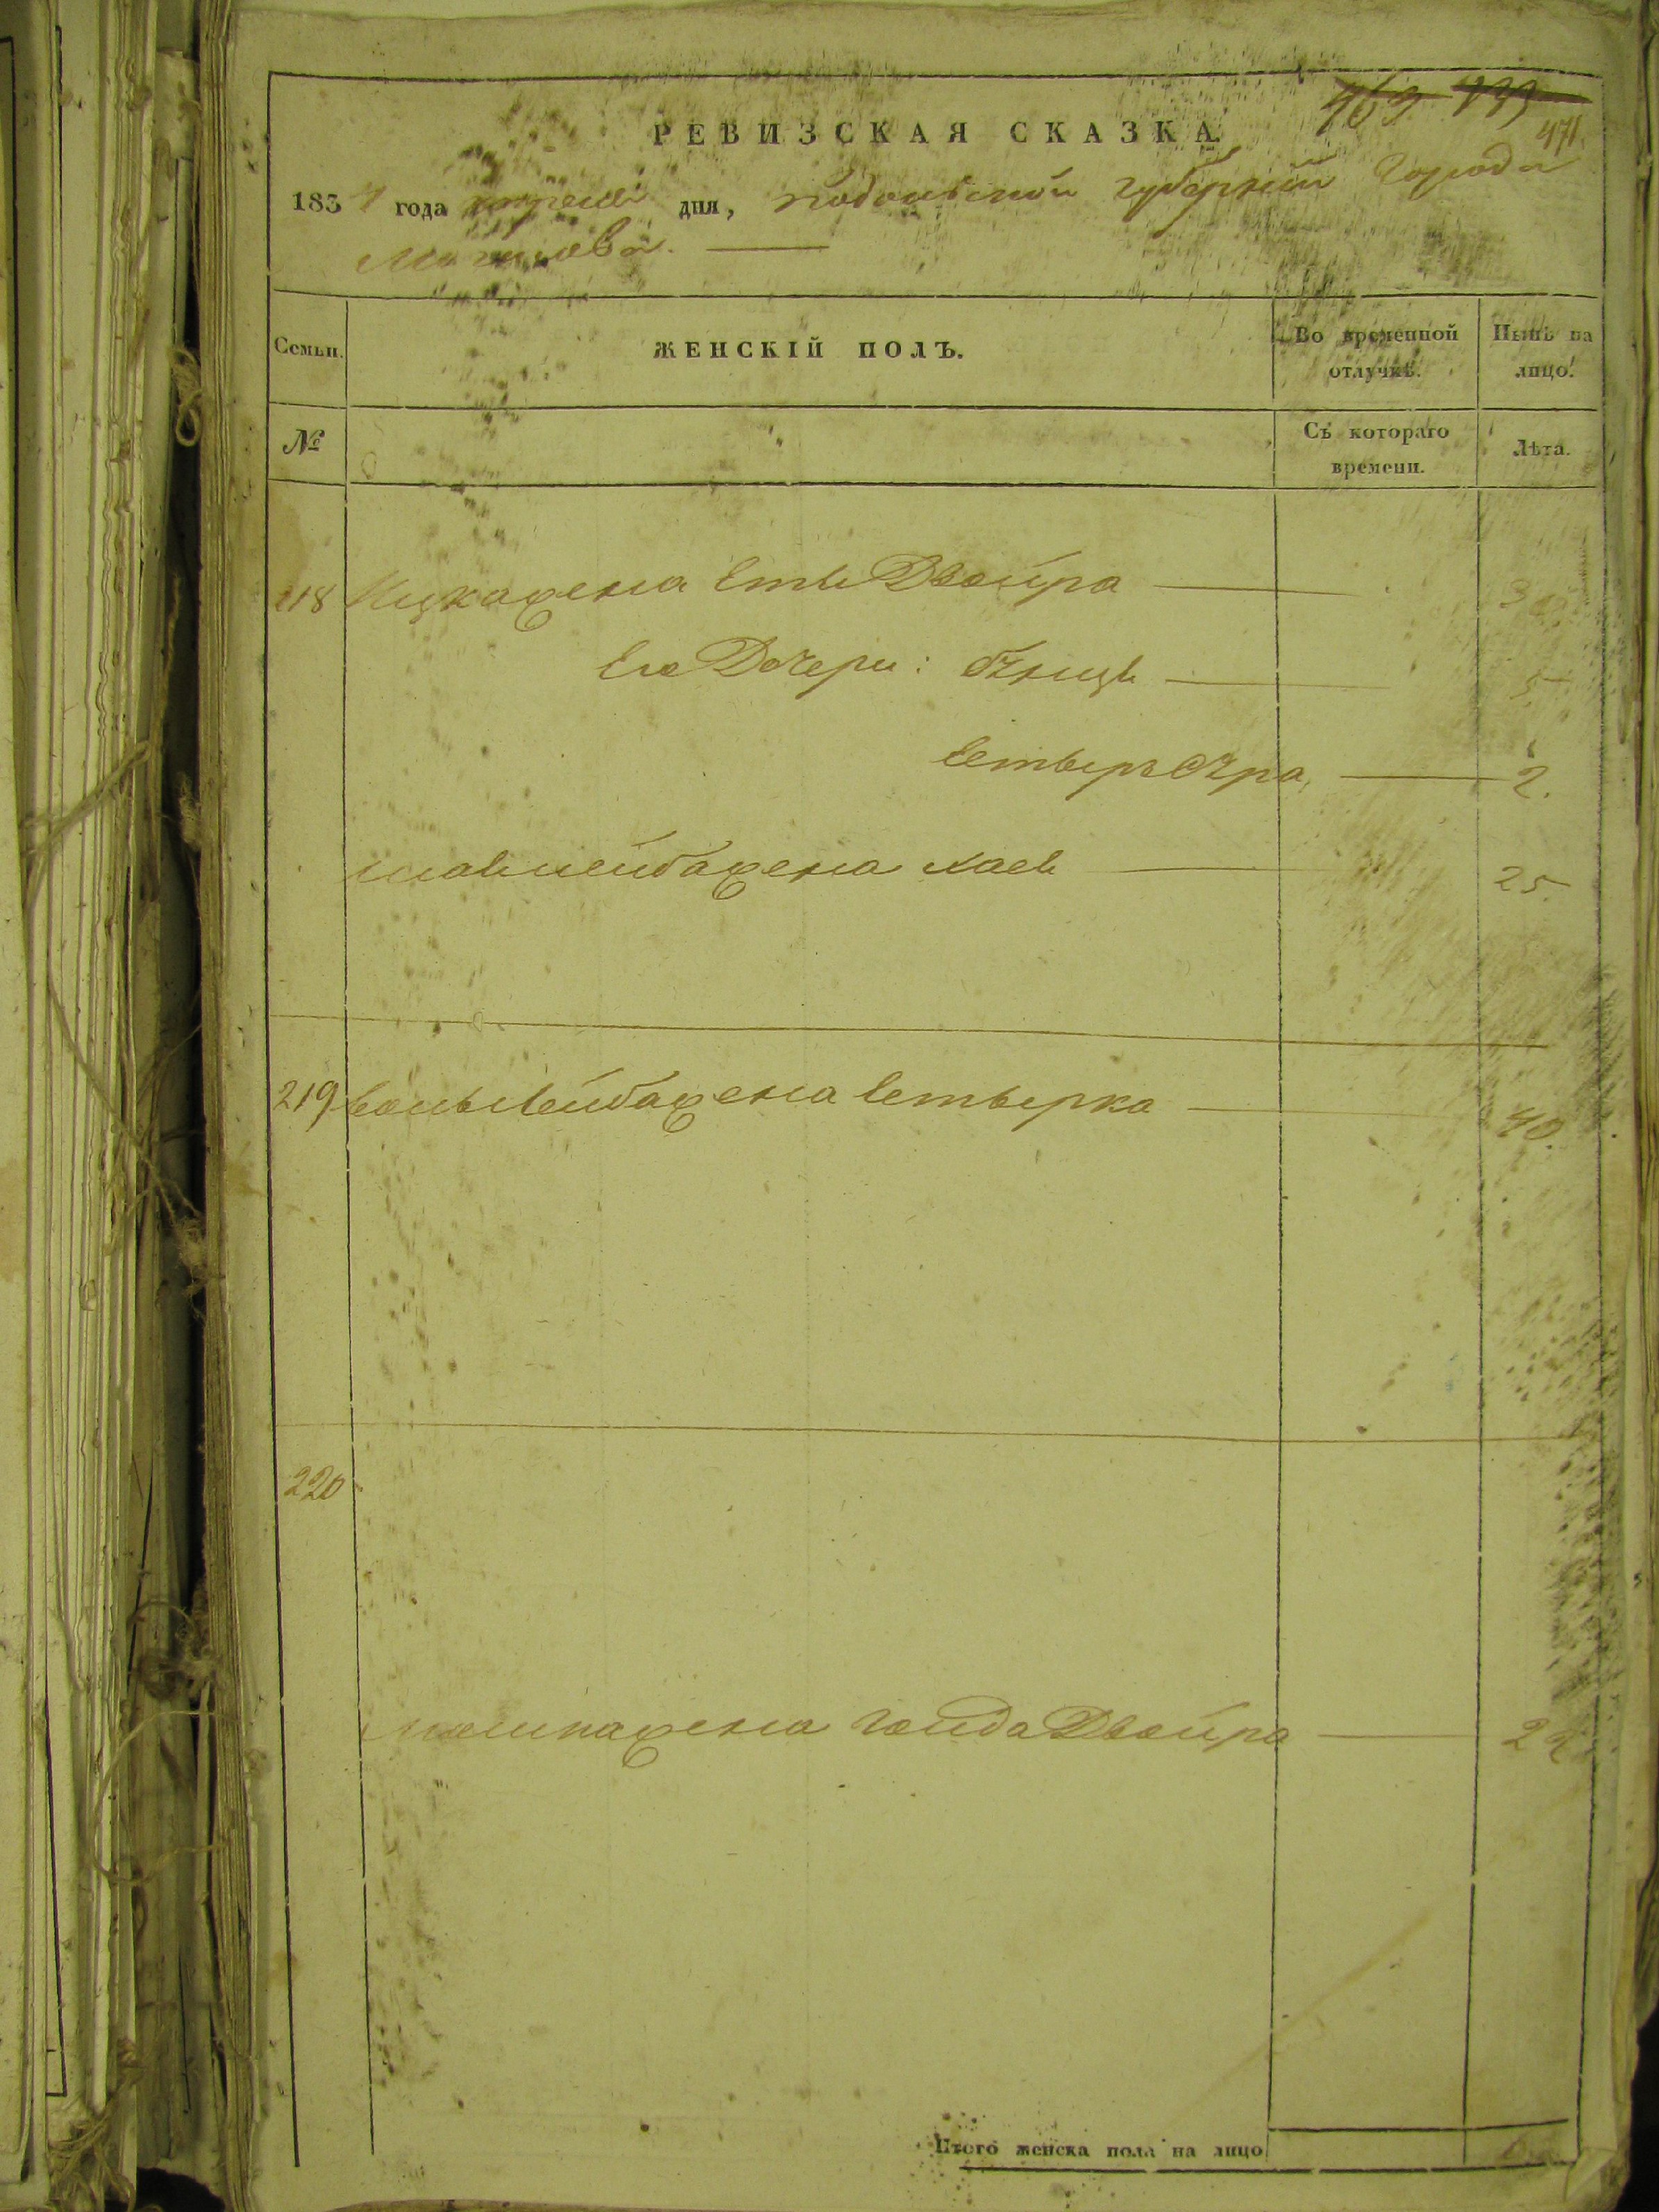 463 499
471
РЕВИЗСКАЯ СКАЗКА
1834 года апреля дня, Подольской губернии Города
Могилева.
Семьи. ЖЕНСКІЙ ПОЛЪ. Во временной отлучкѣ. Нынѣ на лицо.
№ Съ котораго времени. Лѣта.
218 Ицка жена Еты Двойра 30
Его Дочери: 5
Естыръ Сура 2.
жена Хаев 25.
219 Лейба жена Естырка 40.
220
Мошка жена Двойра 22
Итого женска пола на лицо